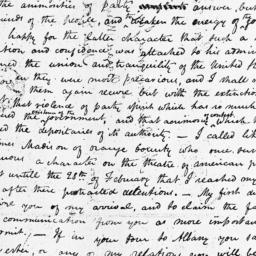 the animosities of party answer, but
minds of the people, and weaken the energy of
happy for the latter character that such a
tion and confidence was attached to his admin
ed the union and tranquility of the United
en they were most precarious, and I shall
them again recover but with the extinction
that violence of party spirit which has so much
ed the government, and that animosity which
ed the depositaries of its authority — I called
of orange county who once
uous a character on the theatre of american
t untill the 28th of February that I reached my
after these protracted detentions. — My first
ize you of my arrival, and to claim the
communication from you as more important
mit. — If in your tour to Albany you
or any of my relations you will